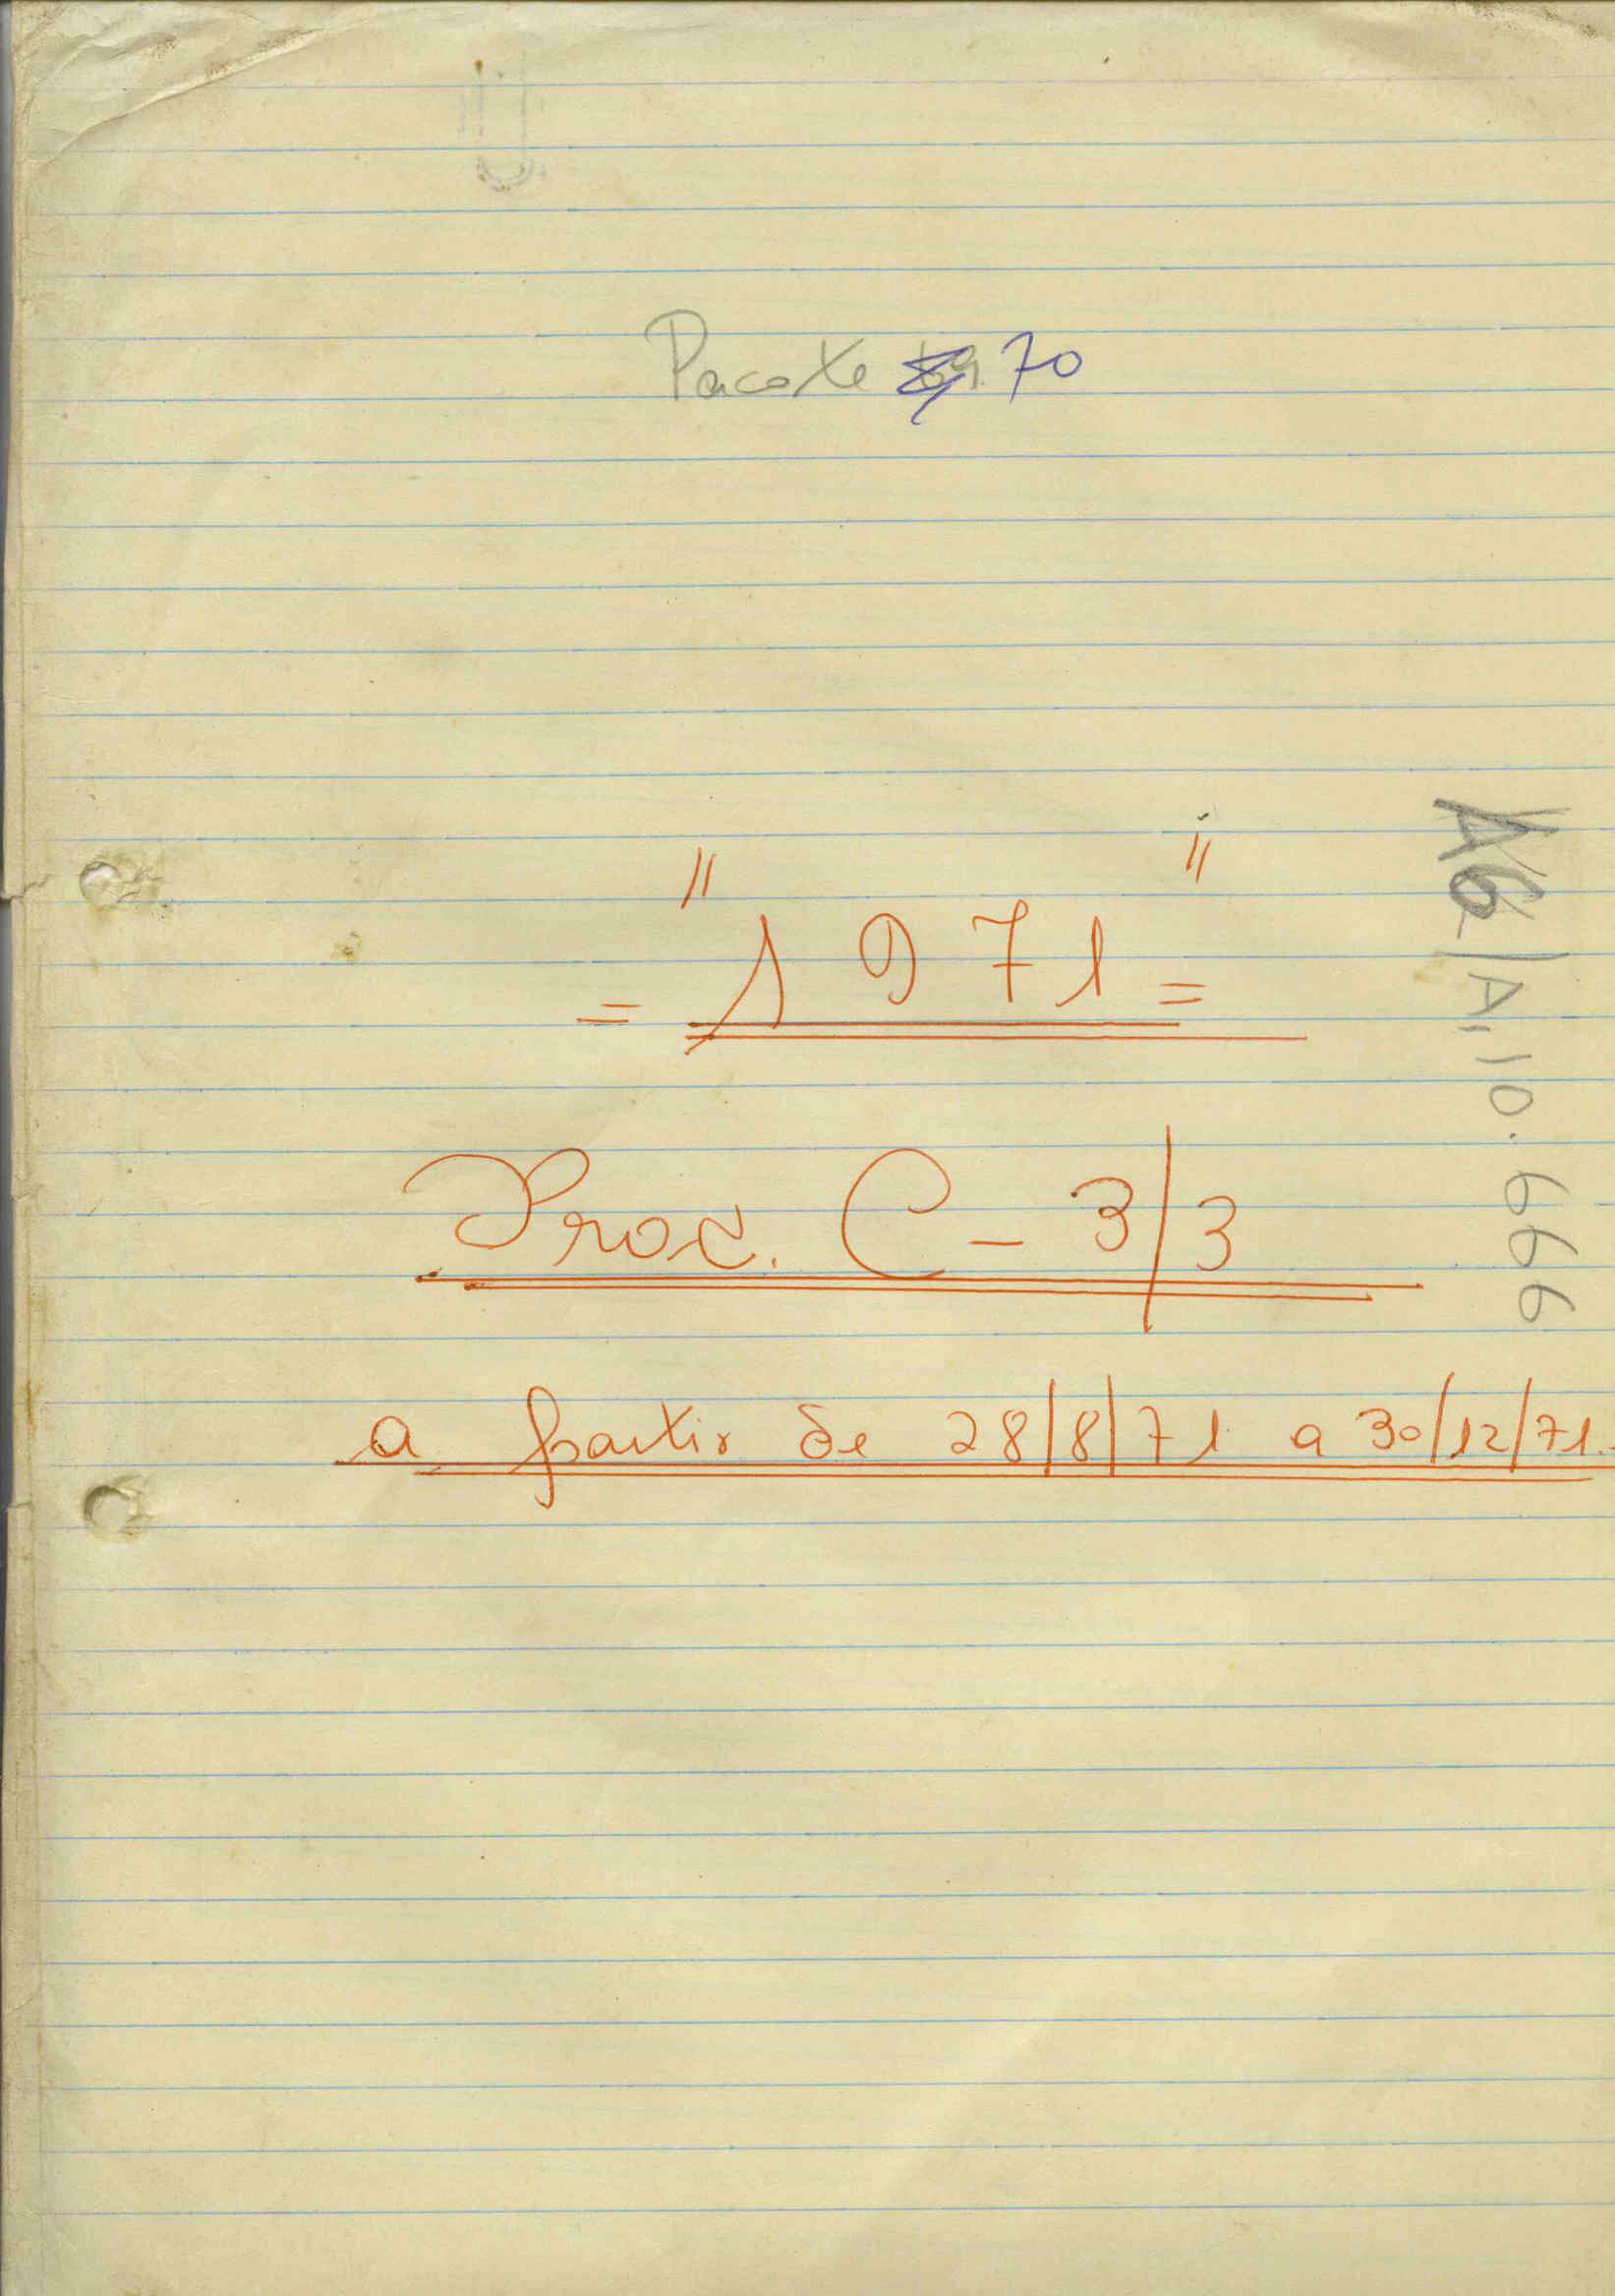 Pacote 70
" "
= 1971 =
Proc. C - 3/3
a partir de 28/8/71 a 30/12/71.
A6/A.10.666